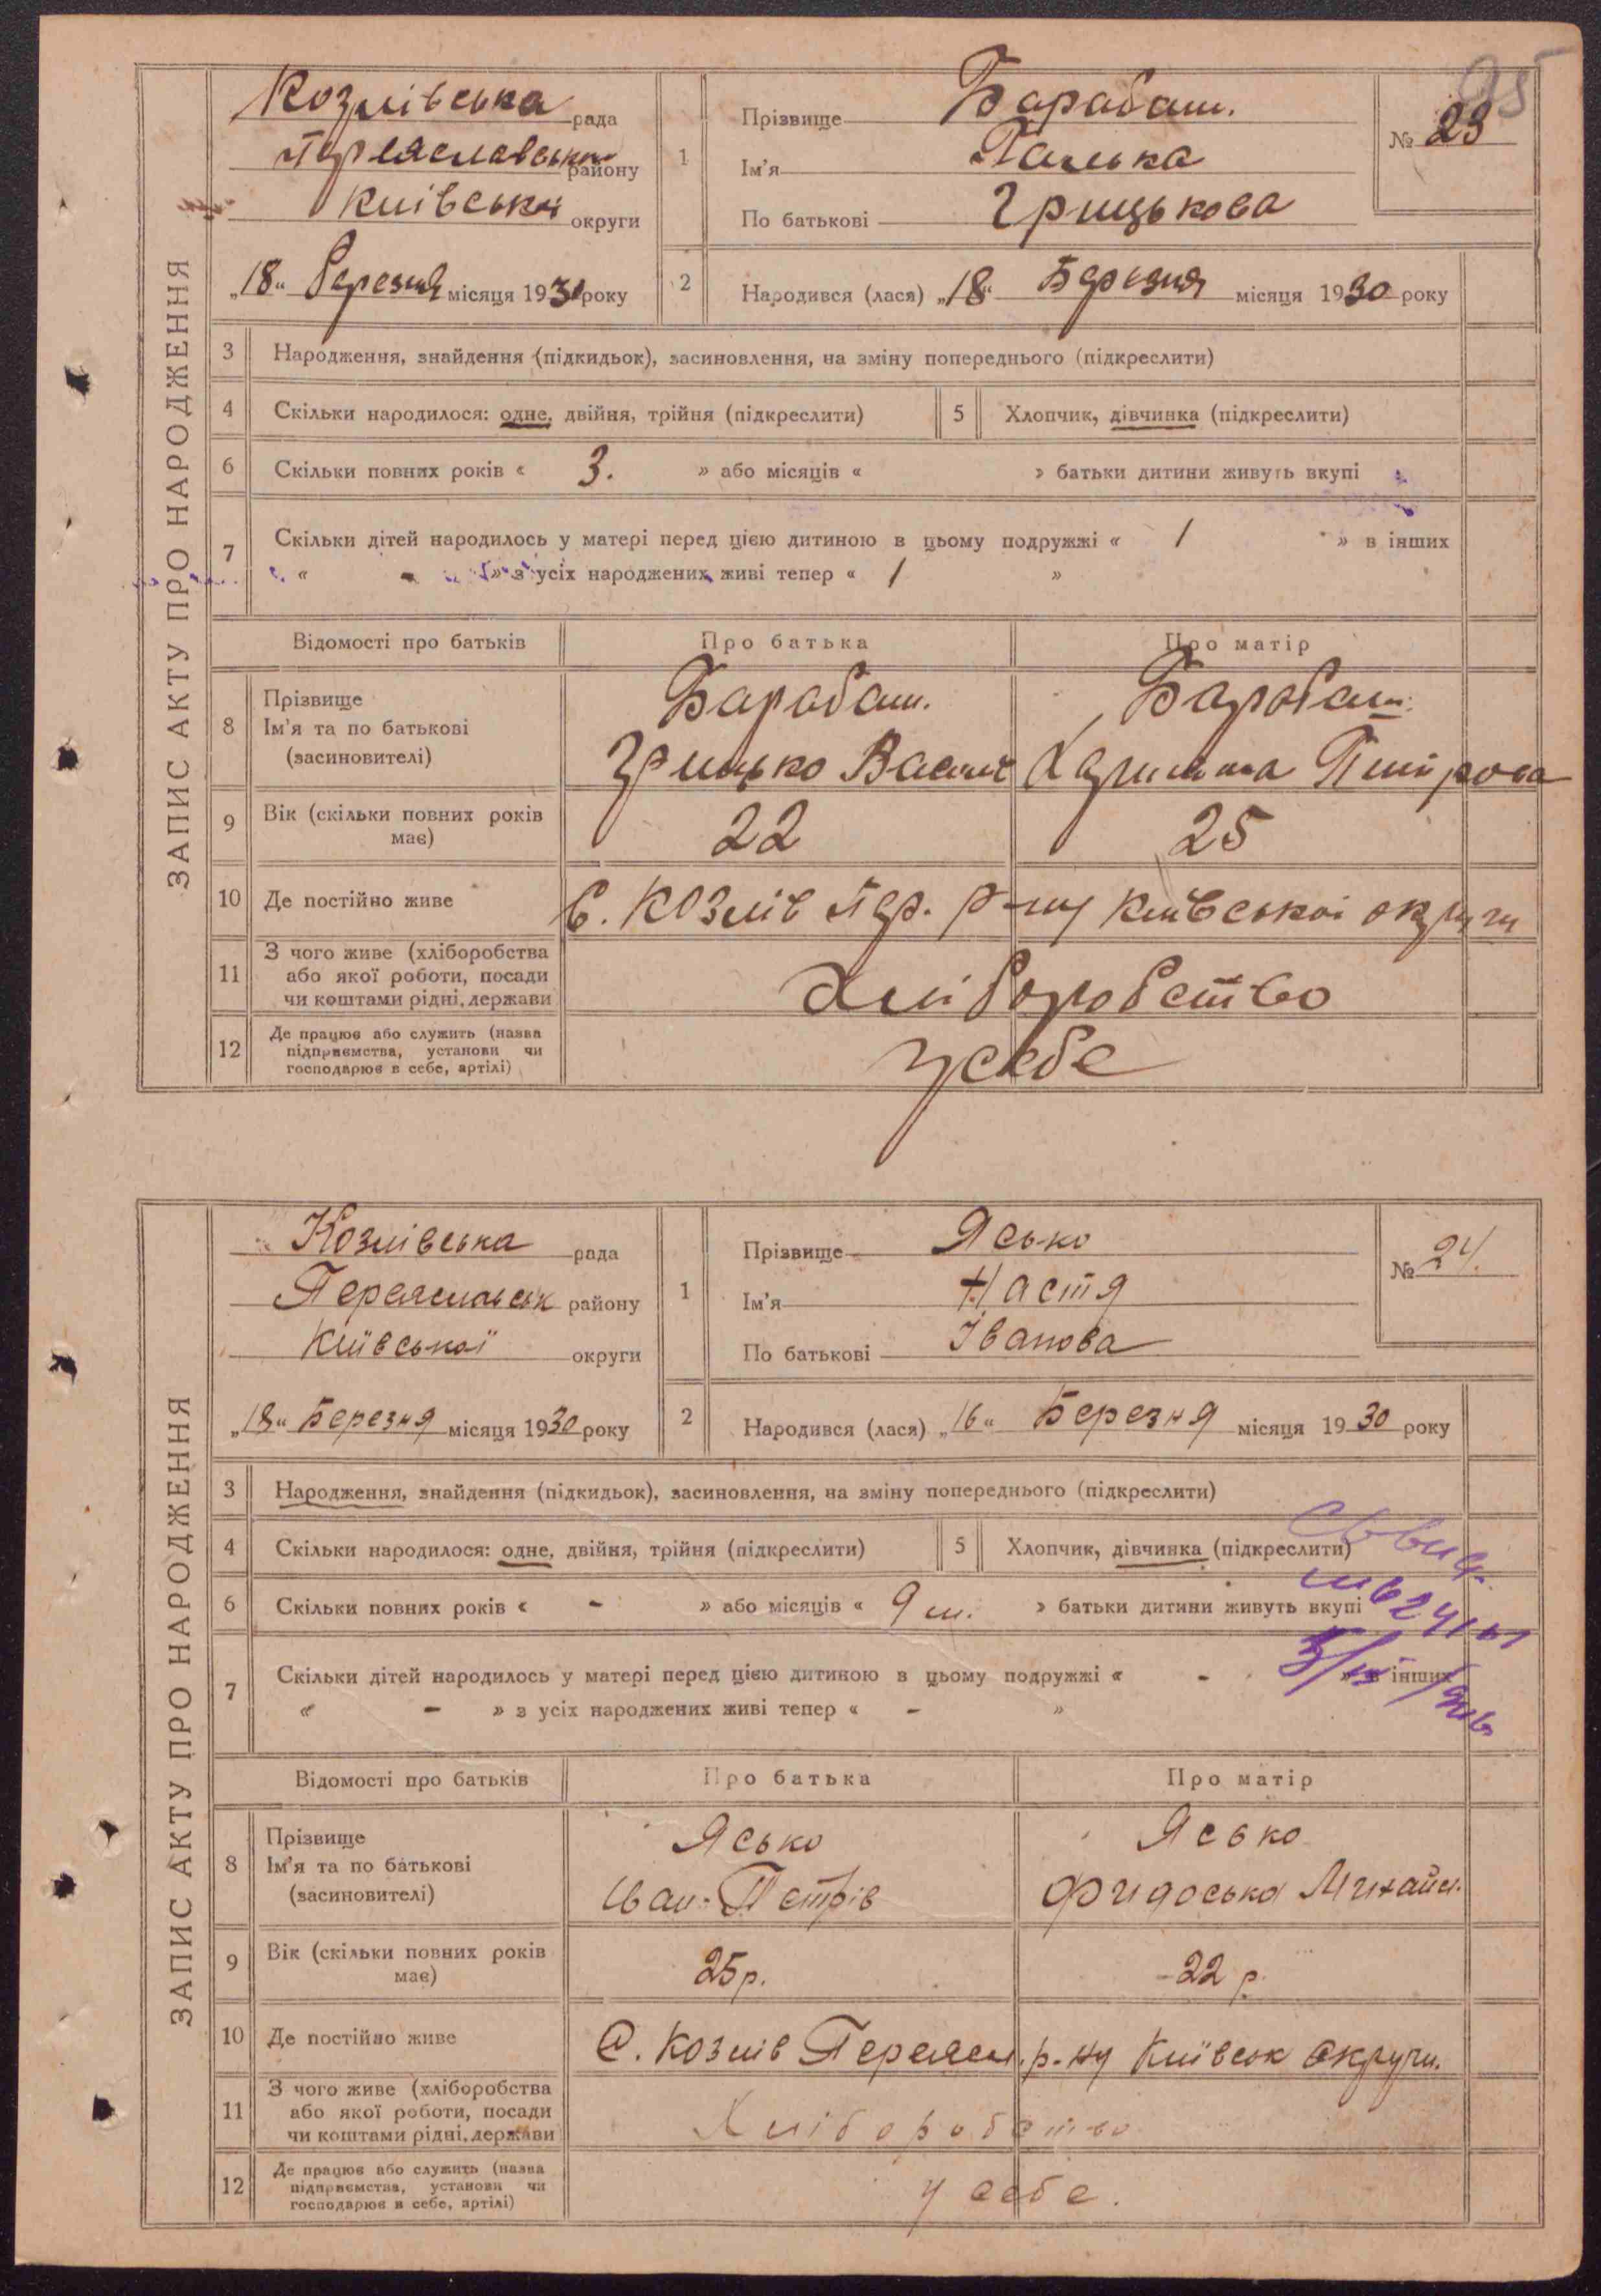 95
ЗАПИС АКТУ ПРО НАРОДЖЕННЯ
Козлівська рада
Переяславськ району
Київськ округи
„18" березня місяця 1930 року
1
Прізвище Барабаш.
Ім'я Галька
По батькові Грицькова
№ 23
2
Народився (лася) „18" Березня місяця 1930 року
3 Народження, знайдення (підкидьок), засиновлення, на зміну попереднього (підкреслити)
4 Скільки народилося: одне, двійня, трійня (підкреслити)
5 Хлопчик, дівчинка (підкреслити)
6 Скільки повних років « 3. » або місяців « » батьки дитини живуть вкупі
7 Скільки дітей народилось у матері перед цією дитиною в цьому подружжі « 1 » в інших
« - » з усіх народжених живі тепер « 1 »
Відомості про батьків Про батька Про матір
8 Прізвище Барабаш. Барабаш.
Ім'я та по батькові Грицько Васил
(засиновителі)
9 Вік (скільки повних років має) 22 25
10 Де постійно живе С. Козлів Пер. р-ну Київської округи
11 З чого живе (хліборобства
або якої роботи, посади
чи коштами рідні, держави
Хліборобство
12 Де працює або служить (назва
підприємства, установи чи
господарює в себе, артілі)
у себе
ЗАПИС АКТУ ПРО НАРОДЖЕННЯ
Козлівська рада
Переяславськ району
Київської округи
„18" Березня місяця 1930 року
1
Прізвище Ясько
Ім'я Настя
По батькові Іванова
№ 24.
2
Народився (лася) „16" Березня місяця 1930 року
3 Народження, знайдення (підкидьок), засиновлення, на зміну попереднього (підкреслити)
4 Скільки народилося: одне, двійня, трійня (підкреслити)
5 Хлопчик, дівчинка (підкреслити)
6 Скільки повних років « - » або місяців « 9 м. » батьки дитини живуть вкупі
7 Скільки дітей народилось у матері перед цією дитиною в цьому подружжі « - » в інших
« - » з усіх народжених живі тепер « - »
Відомості про батьків Про батька Про матір
8 Прізвище Ясько Ясько
Ім'я та по батькові Іван Петрів Фидоська Михайл.
(засиновителі)
9 Вік (скільки повних років має) 25 р. 22 р.
10 Де постійно живе С. Козлів Переясл. р-ну Київськ округи.
11 З чого живе (хліборобства
або якої роботи, посади
чи коштами рідні, держави
Хліборобство
12 Де працює або служить (назва
підприємства, установи чи
господарює в себе, артілі)
у себе.